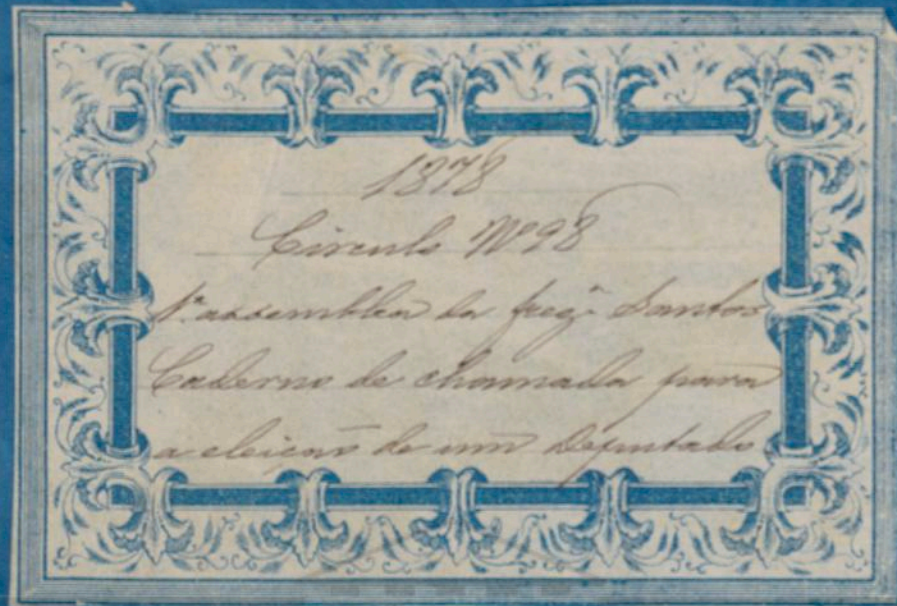 1878
Circulo Nº 98
1ª assemblea da fregª Santos
Caderno de chamada para
a eleição de um Deputado